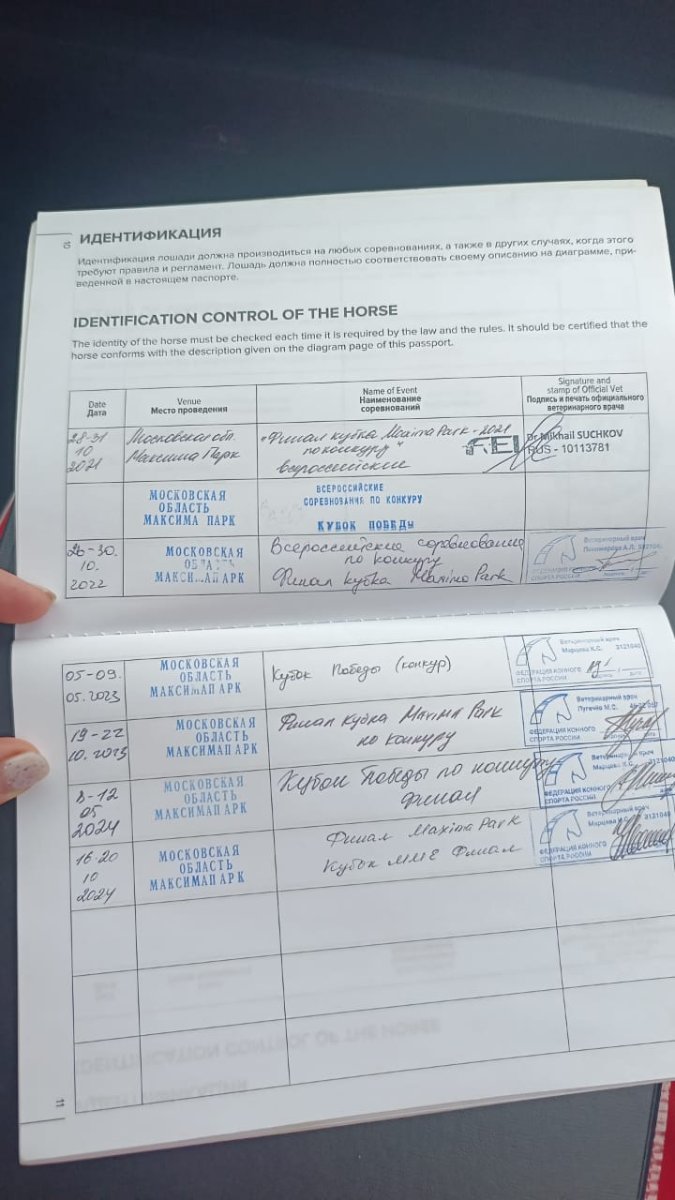 10
ИДЕНТИФИКАЦИЯ
Идентификация лошади должна производиться на любых соревнованиях, а также в других случаях, когда этого
требуют правила и регламент. Лошадь должна полностью соответствовать своему описанию на диаграмме, при-
веденной в настоящем паспорте.
IDENTIFICATION CONTROL OF THE HORSE
The identity of the horse must be checked each time it is required by the law and the rules. It should be certified that the
horse conforms with the description given on the diagram page of this passport.
Date
Дата
Venue
Место проведения
Name of Event
Наименование
соревнований
Signature and
stamp of Official Vet
Подпись и печать официального
ветеринарного врача
28-31
10
2021
Московская обл.
Максима Парк
"Финал кубка Maxima Park - 2021
по конкуру"
всероссийские
FEI
Dr Mikhail SUCHKOV
RUS - 10113781
МОСКОВСКАЯ
ОБЛАСТЬ
МАКСИМА ПАРК
ВСЕРОССИЙСКИЕ
СОРЕВНОВАНИЯ ПО КОНКУРУ
КУБОК ПОБЕДЫ
26-30.
10.
2022
МОСКОВСКАЯ
МАКСИМАПАРК
Всероссийские соревнования
по конкуру
Финал кубка Maxima Park
Ветеринарный врач
ФЕДЕРАЦИЯ КОННОГО
СПОРТА РОССИИ
05-09.
05.2023
МОСКОВСКАЯ
ОБЛАСТЬ
МАКСИМАПАРК
Кубок Победы (конкур)
Ветеринарный врач
Марцева К.С. 3121040
ФЕДЕРАЦИЯ КОННОГО
СПОРТА РОССИИ
19-22
10.2023
МОСКОВСКАЯ
ОБЛАСТЬ
МАКСИМАПАРК
Финал Кубка Maxima Park
по конкуру
Ветеринарный врач
Пугачко М.С.
ФЕДЕРАЦИЯ КОННОГО
СПОРТА РОССИИ
8-12
05
2024
МОСКОВСКАЯ
ОБЛАСТЬ
МАКСИМАПАРК
Кубок Победы по конкуру
Финал
Ветеринарный врач
Марцева К.С. 3121040
ФЕДЕРАЦИЯ КОННОГО
СПОРТА РОССИИ
16-20
10
2024
МОСКОВСКАЯ
ОБЛАСТЬ
МАКСИМАПАРК
Финал Maxima Park
Кубок ММЕ Финал
Ветеринарный врач
Марцева К.С. 3121040
ФЕДЕРАЦИЯ КОННОГО
СПОРТА РОССИИ
11